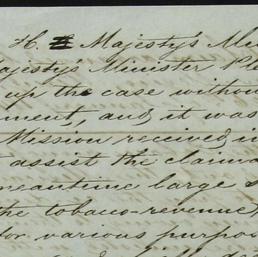 H. Majesty's
Majesty's Minister
up the case without
ment, and it was
Mission received
assist the
meantime large
the tobacco-revenue
for various